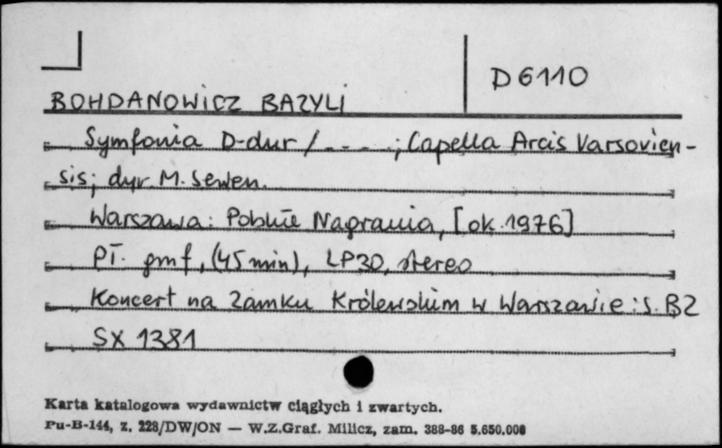 D 6110
BOHDANOWICZ BAZYLI
Symfonia D-dur / - - - - ; Capella Arcis Varsovien-
sis; dyr. M. Sewen.
Warszawa: Polskie Nagrania, [ok. 1976]
Pł. gmf, (45 min), LP30, stereo
Koncert na Zamku Królewskim w Warszawie: s. B2
SX 1381
Karta katalogowa wydawnictw ciągłych i zwartych.
Pu-B-144, z. 228/DW/ON — W.Z.Graf. Milicz, zam. 388-86 5.650.000